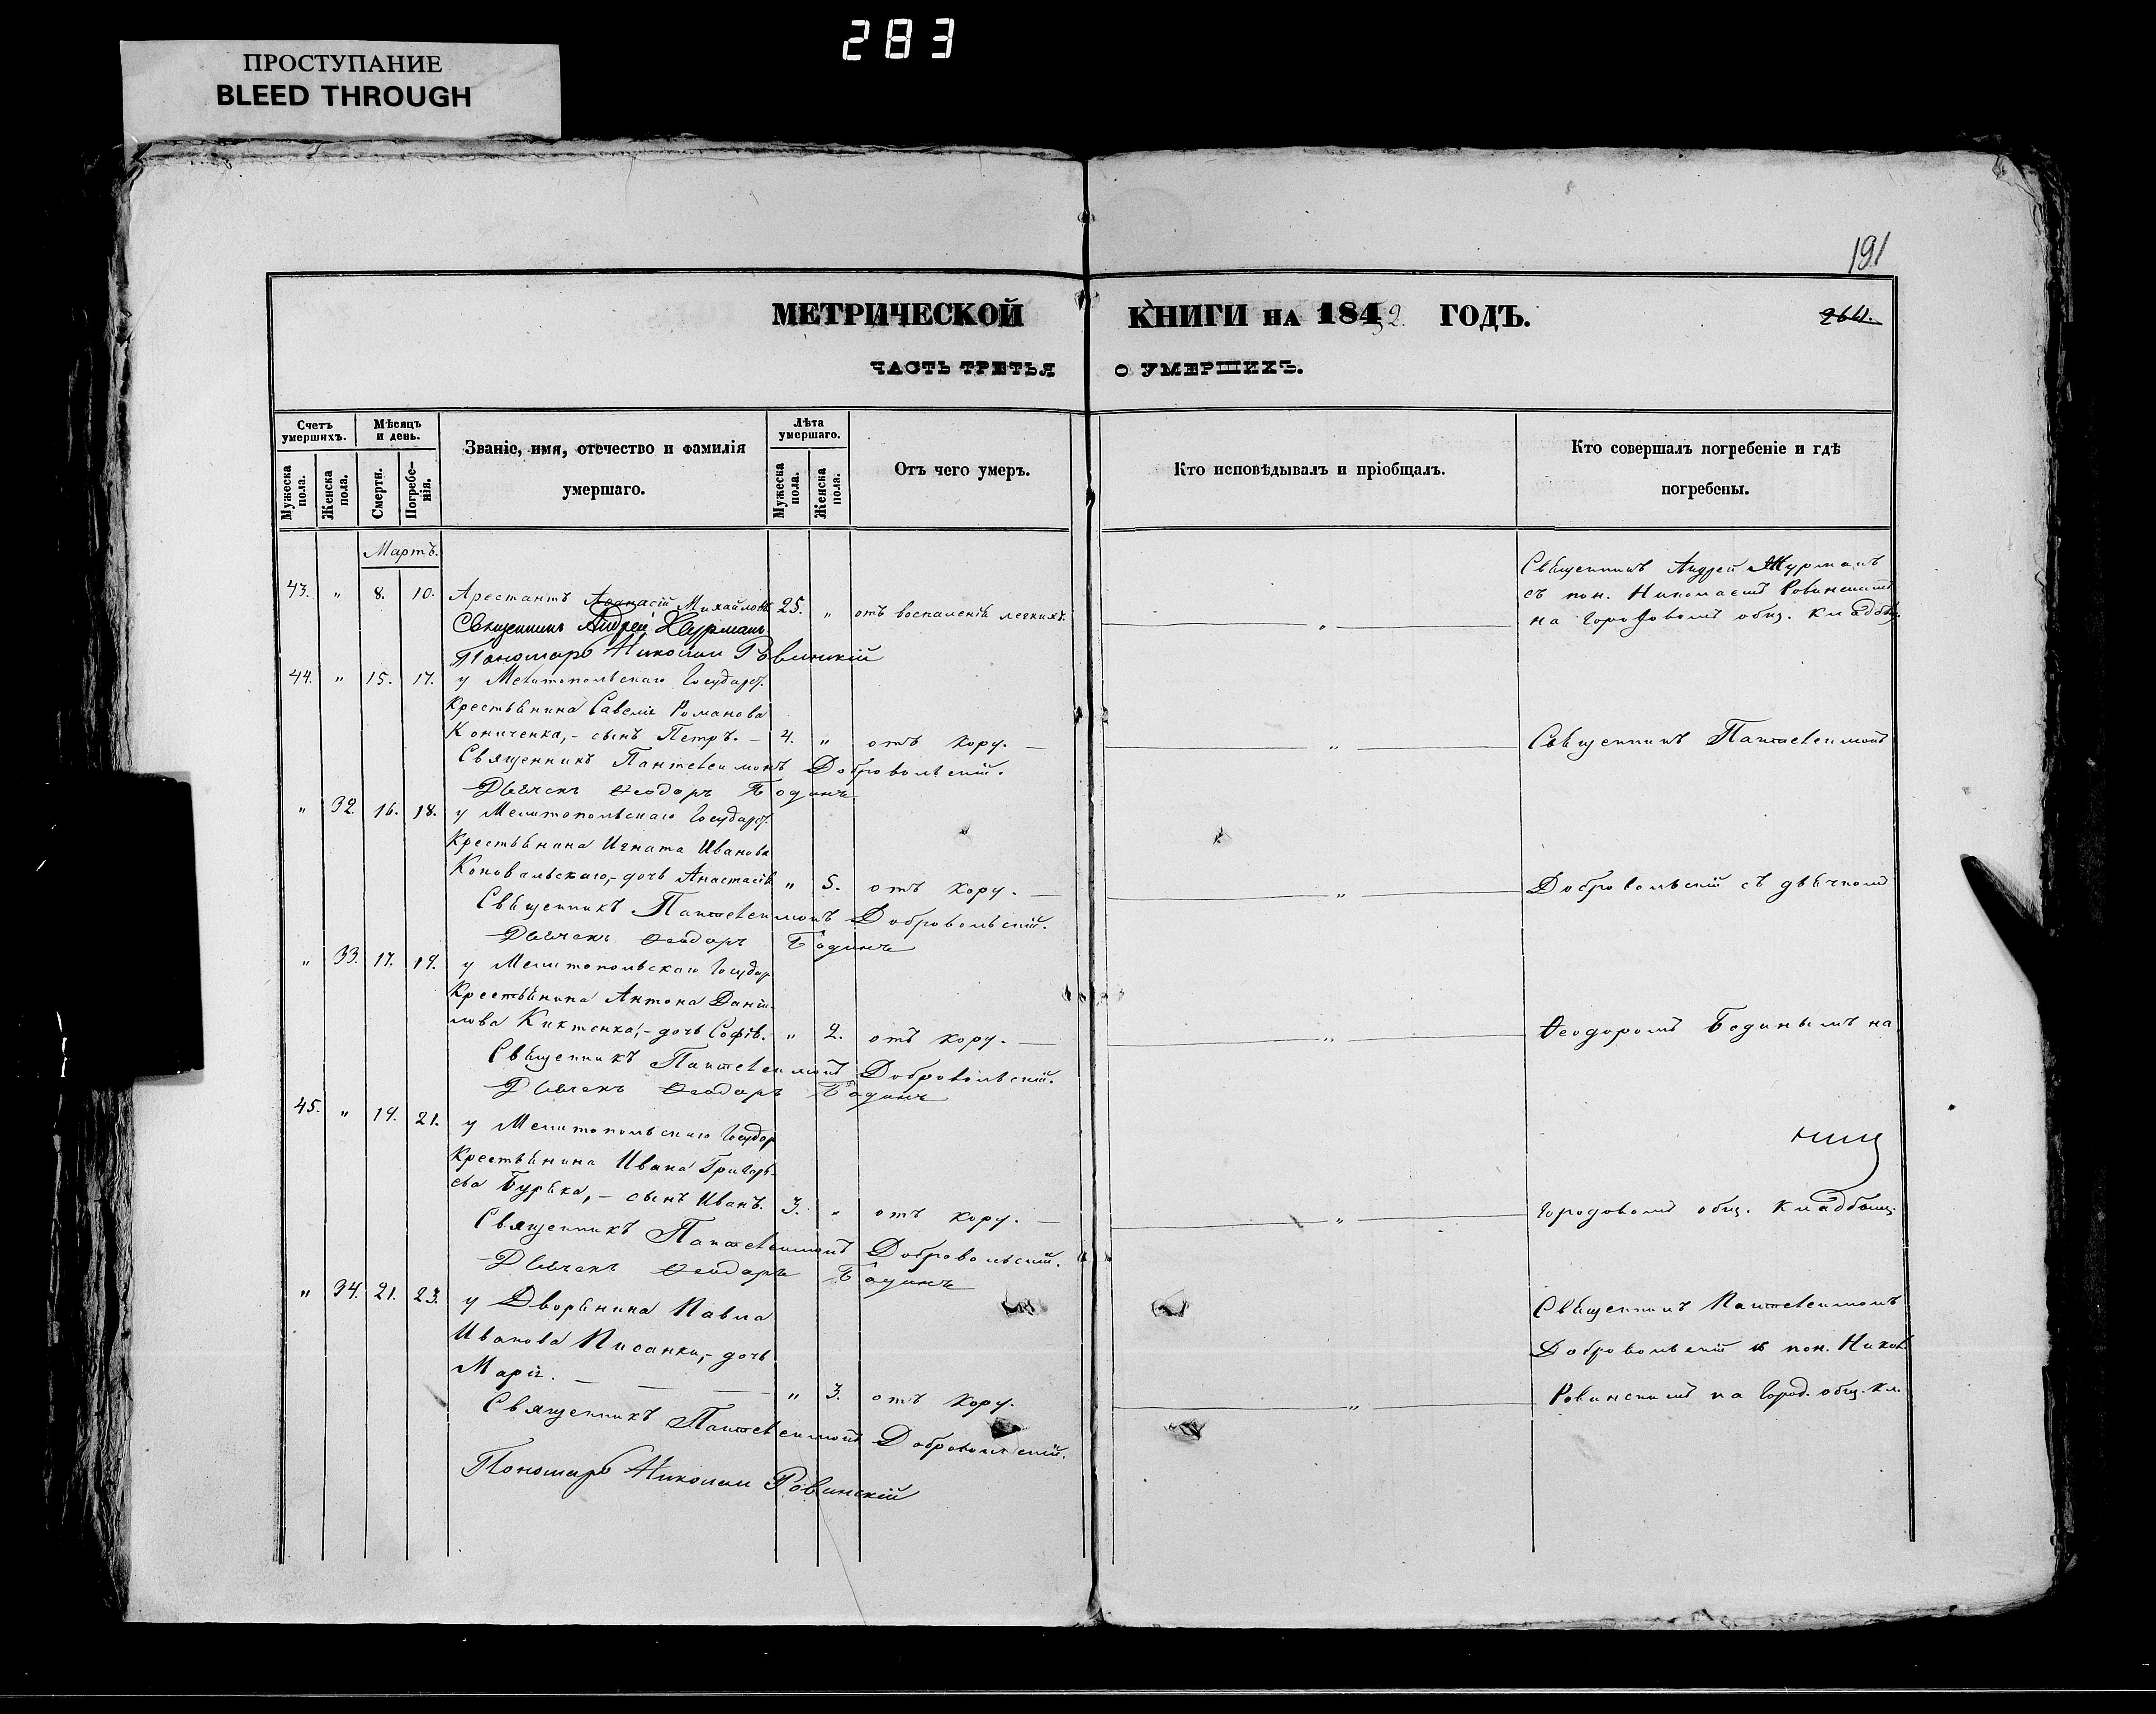 283
ПРОСТУПАНИЕ
BLEED THROUGH
191
МЕТРИЧЕСКОЙ КНИГИ НА 18452. ГОДЪ.
264.
ЧАСТЬ ТРЕТЬЯ О УМЕРШИХЪ.
Счетъ умершихъ.
Мѣсяцъ и день.
Званіе, имя, отечество и фамилія умершаго.
Лѣта умершаго.
Отъ чего умеръ.
Кто исповѣдывалъ и пріобщалъ.
Кто совершалъ погребеніе и гдѣ погребены.
Мужеска пола.
Женска пола.
Смерти.
Погребенія.
Мужеска пола.
Женска пола.
Мартъ.
43. " 8. 10. Арестантъ Афанасій Михайловъ 25. " отъ воспаленія легкихъ. "
Священникъ Андрей Журманъ
Пономарь Николай Ровинскій
Священникъ Андрей Журманъ
съ пон. Николаемъ Ровинскимъ
на городовомъ общ. кладбищ.
44. " 15. 17. у Мелитопольскаго государ.
Крестьянина Савелія Романова
Кониченка, - сынъ Петръ. - 4. " отъ кору. — "
Священникъ Пантелеимонъ Добровольскій.
Дьячекъ Ѳеодоръ Бодинъ
Священникъ Пантелеимонъ
" 32. 16. 18. у Мелитопольскаго государ.
Крестьянина Игната Иванова
Коновальскаго, - дочь Анастасія " 5. отъ кору. — "
Священникъ Пантелеимонъ Добровольскій.
Дьячекъ Ѳеодоръ Бодинъ
Добровольскій съ дьячкомъ
" 33. 17. 19. у Мелитопольскаго государ
Крестьянина Антона Дании-
лова Киктенка, - дочь Софія. " 2. отъ кору. — "
Священникъ Пантелеимонъ Добровольскій.
Дьячекъ Ѳеодоръ Бодинъ
Ѳеодоромъ Бодинымъ на
45. " 19. 21. у Мелитопольскаго государ
Крестьянина Ивана Григорь-
ева Буряка, - сынъ Иванъ. 3. " отъ кору. — "
Священникъ Пантелеимонъ Добровольскій.
Дьячекъ Ѳеодоръ Бодинъ
городовомъ общ. кладбищ.
" 34. 21. 23. у Дворянина Павла
Иванова Писанки, - дочь
Марія. — — — " 3. отъ кору. "
Священникъ Пантелеимонъ Добровольскій.
Пономарь Николай Ровинскій
Священникъ Пантелеимонъ
Добровольскій съ пон. Никол.
Ровинскимъ на город. общ. кл.